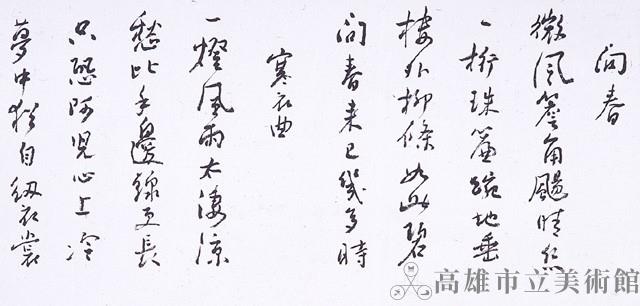 問春
微風簷角颺晴絲
一桁珠簾踠地垂
樓外柳條如此碧
問春来已幾多時
寒衣曲
一燈風雨太淒涼
愁比手邊線更長
只恐阿兒心上冷
夢中猶自紉衣裳
高雄市立美術館